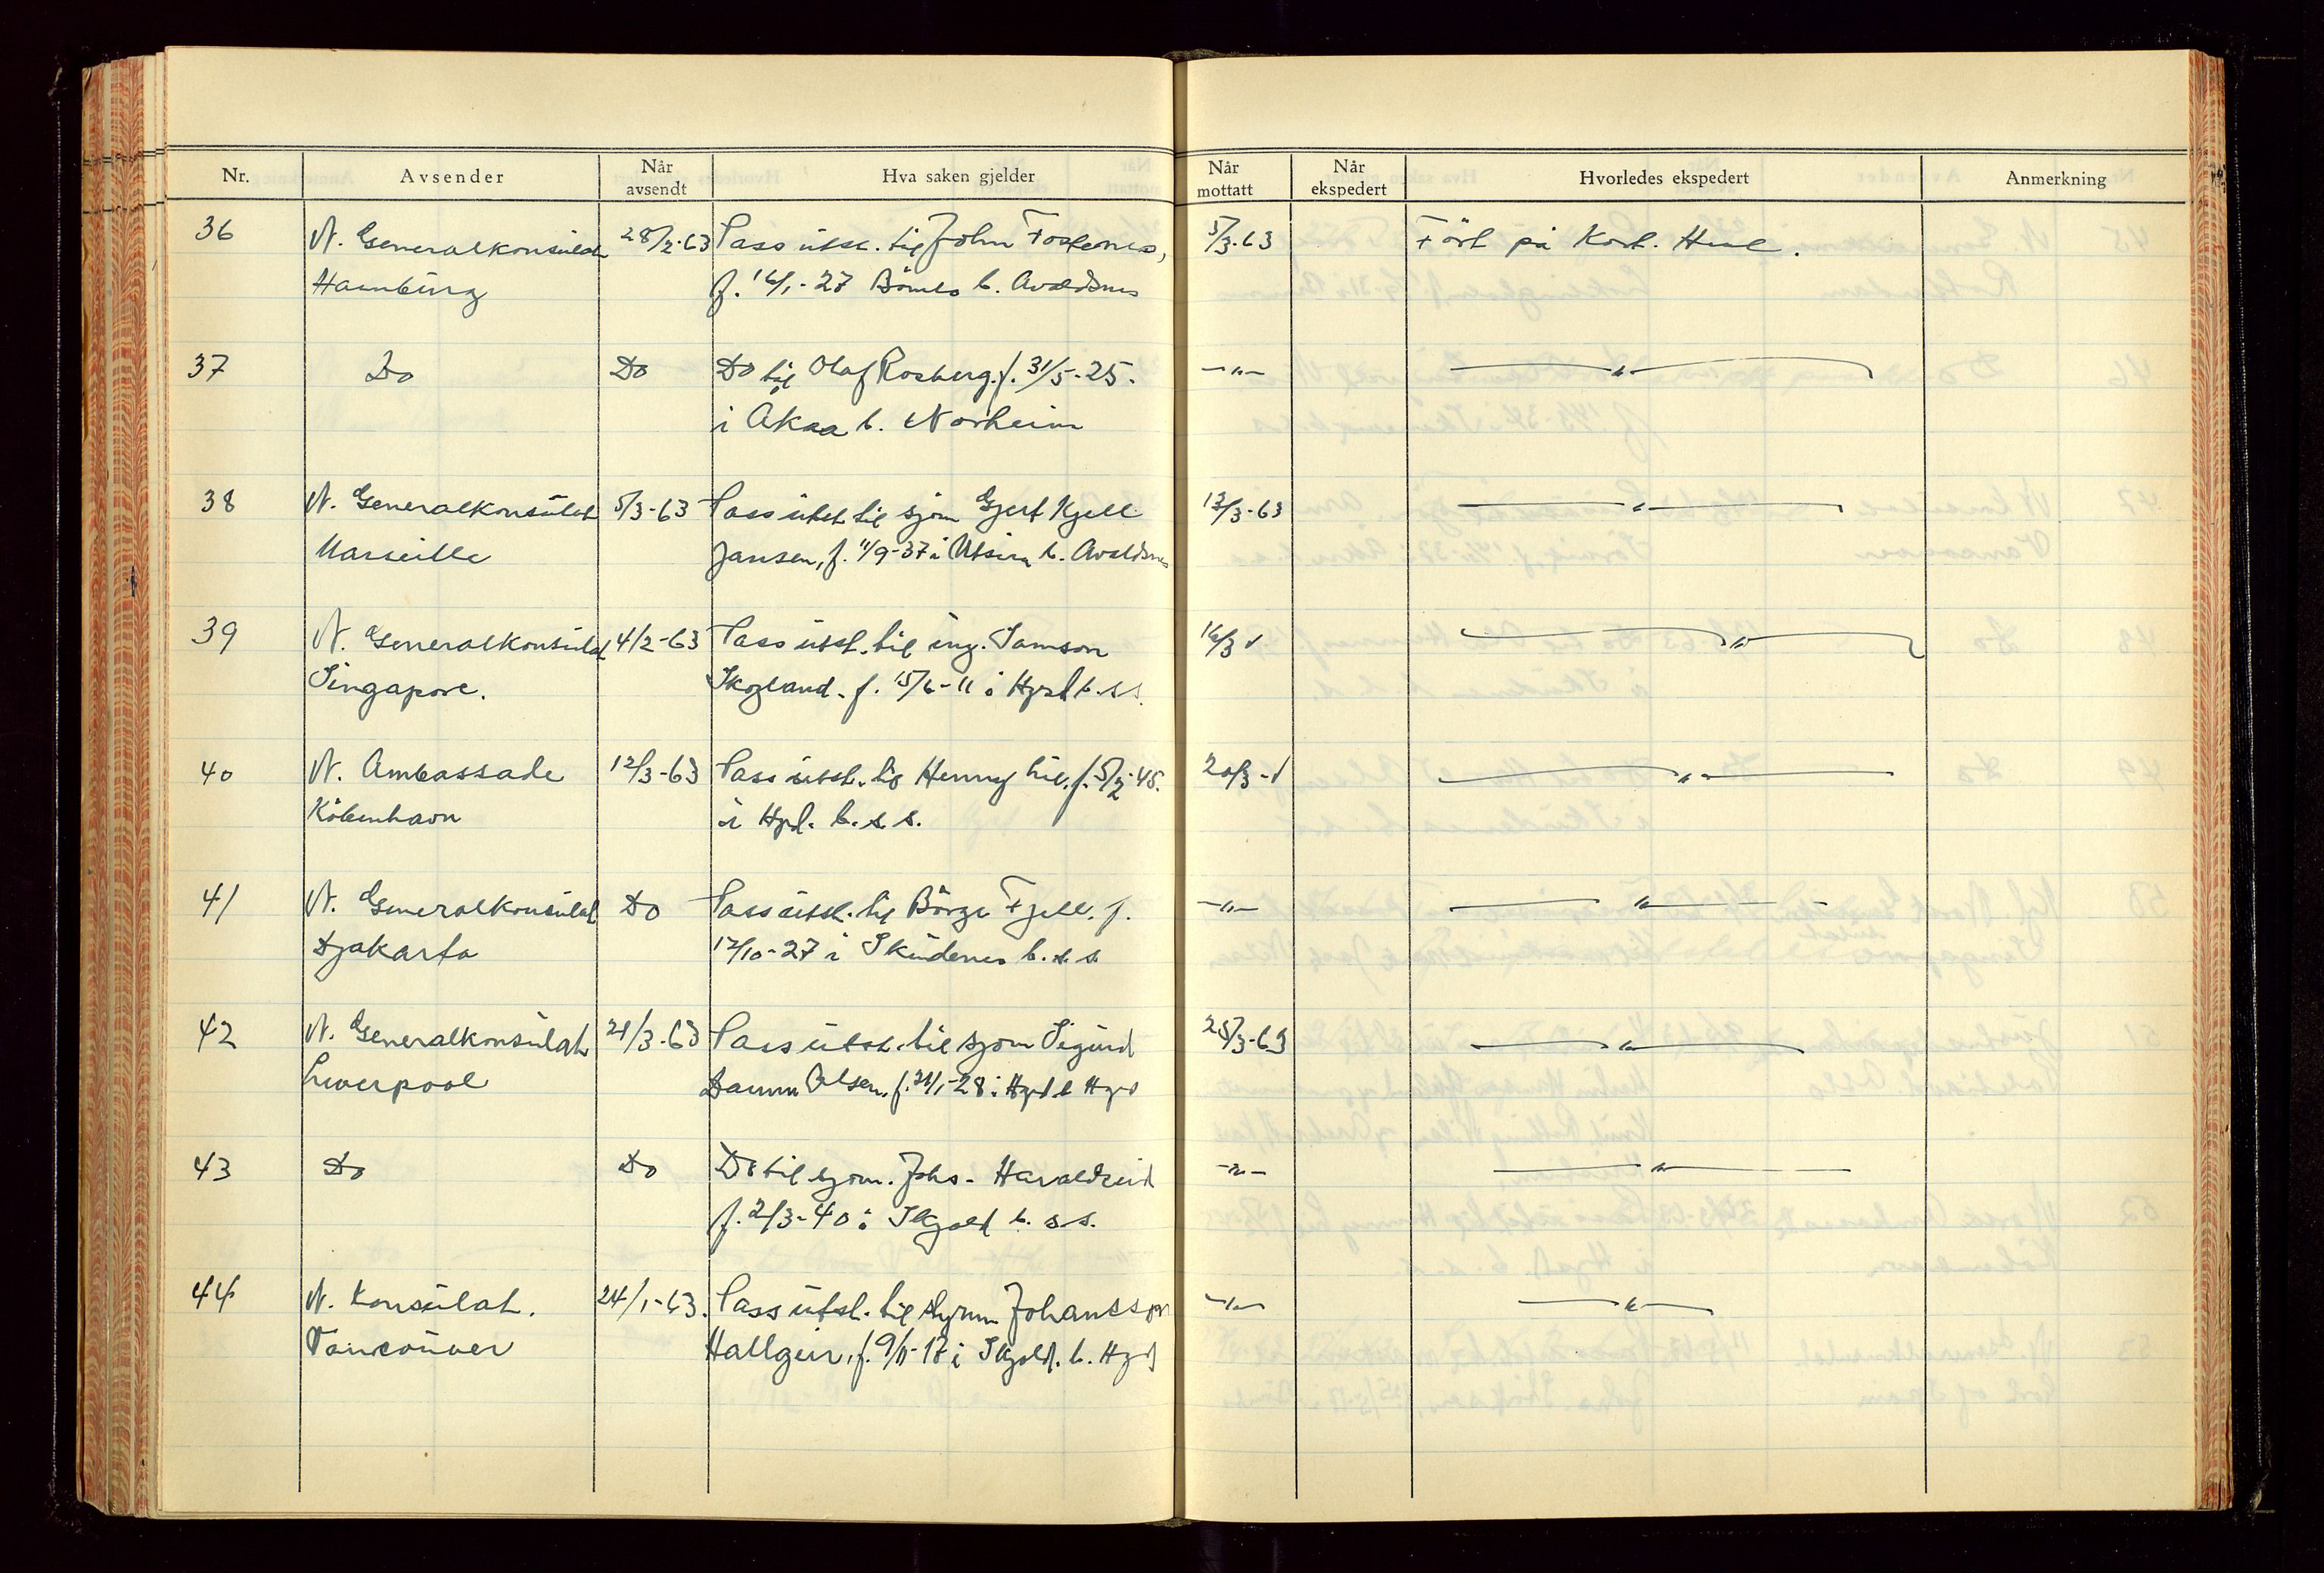 Nr. Avsender Når avsendt Hva saken gjelder Når mottatt Når ekspedert Hvorledes ekspedert Anmerkning
36 N. Generalkonsulat 28/2-63 Pass utst. til John Fosternes, 5/3-63 Ført på Kort.
Hamburg f. 16/1-27 Bömlo b. Avaldsnes
37 Do Do Do til Olaf Rosberg. f. 31/5-25. -"- -"-
i Akaa b. Norheim
38 N. Generalkonsulat 5/3-63 Pass utst til sjøm Gjert Kjell 13/3-63 -"-
Marseille Jansen, f. 11/9-37 i Utsira b. Avaldsnes
39 N. Generalkonsulat 14/2-63 Pass utst. til ing. Samson 16/3 -"-
Singapore. Skogland. f. 15/6-11 i Hgsd b. s s.
40 N. Ambassade 12/3-63 Pass utst. til Henny f. 5/2-45. 20/3 -"-
København i Hgsd. b. s. s.
41 N. Generalkonsulat Do Pass utst. til Börge Fjell. f. -"- -"-
Djakarta 12/10-27 i Skudenes b. s. s
42 N. Generalkonsulat 21/3-63 Pass utst. til sjøm Sigurd 25/3-63 -"-
Liverpool Olsen, f. 21/1-28 i Hgsd b Hgsd
43 Do Do Do til sjøm. Johs. Haraldseid -"- -"-
f. 2/3-40 i Skjold b. s.s.
44 N. Konsulat. 24/1-63. Pass utst. til styrm Johansson -"- -"-
Vancouver Hallgeir, f. 9/11-17 i Skjold. b. Hgsd